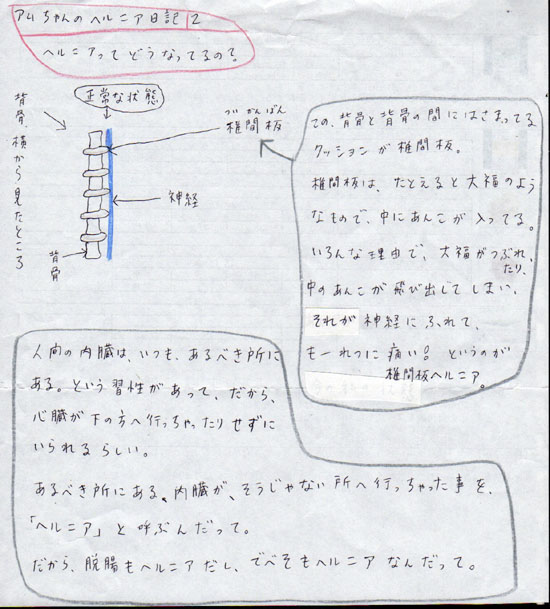 アムちゃんのヘルニア日記 2
ヘルニアって どうなってるの?
正常な状態
背骨、横から見たところ
ついかんばん
椎間板
神経
背骨
この、背骨と背骨の間にはさまってる
クッションが椎間板。
椎間板は、たとえると大福のよう
なもので、中にあんこが入ってる。
いろんな理由で、大福がつぶれ
たり、
中のあんこが飛び出してしまい、
それが神経にふれて、
もーれつに痛い! というのが
椎間板ヘルニア。
人間の内臓は、いつも、あるべき所に
ある。という習性があって、だから、
心臓が下の方へ行っちゃったりせずに
いられるらしい。
あるべき所にある、内臓が、そうじゃない所へ行っちゃった事を、
「ヘルニア」と呼ぶんだって。
だから、脱腸もヘルニアだし、でべそもヘルニアなんだって。